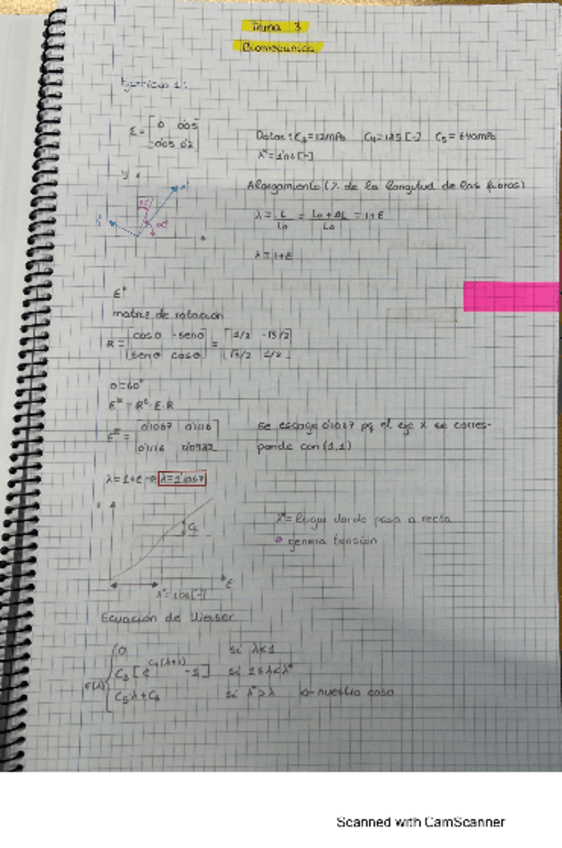 Tema 3
Biomecanica
Ejercicio 1:
ε = [0 0'05
-0'05 0'2]
Datos: C3=12MPa C4=185[-] C5=640MPa
λ*=1'06[-]
Alargamiento (% de la longitud de las fibras)
λ = L/L0 = (L0 + ΔL)/L0 = 1+ε
λ = 1+ε
ε*
matriz de rotación
R = [cosθ -senθ = [1/2 -√3/2
senθ cosθ] √3/2 1/2]
θ=60°
ε* = Rt · ε · R
ε* = [0'1067 0'1116
0'1116]
se escoge 0'1067 pq el eje x se corres-
ponde con (1,1)
λ=1+ε → λ=1'1067
λ*= lugar donde pasa a recta
genera tensión
λ*=1'06[-]
ε
Ecuación de
σ(λ) { 0 si λ<1
C3 [e -1] si 1≤λ<λ*
C5λ+C6 si λ*>λ → nuestro caso
Scanned with CamScanner